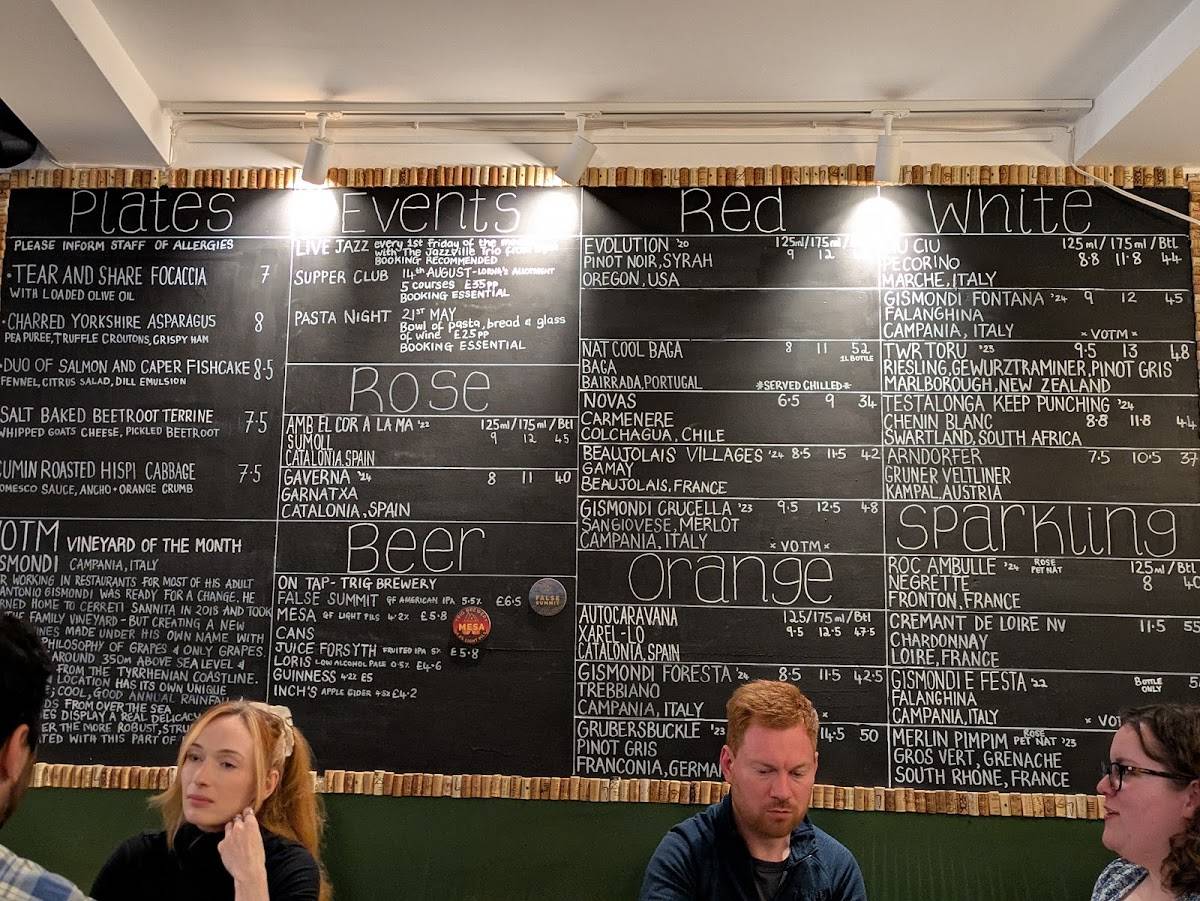 Plates
PLEASE INFORM STAFF OF ALLERGIES
• TEAR AND SHARE FOCACCIA 7
WITH LOADED OLIVE OIL
• CHARRED YORKSHIRE ASPARAGUS 8
PEA PUREE, TRUFFLE CROUTONS, GRISPY HAM
• DUO OF SALMON AND CAPER FISHCAKE 8.5
FENNEL, CITRUS SALAD, DILL EMULSION
SALT BAKED BEETROOT TERRINE 7.5
WHIPPED GOATS CHEESE, PICKLED BEETROOT
CUMIN ROASTED HISPI CABBAGE 7.5
OMESCO SAUCE, ANCHO + ORANGE CRUMB
VOTM VINEYARD OF THE MONTH
SMONDI CAMPANIA, ITALY
R WORKING IN RESTAURANTS FOR MOST OF HIS ADULT
ANTONIO GISMONDI WAS READY FOR A CHANGE. HE
RNED HOME TO CERRETI SANNITA IN 2018 AND TOOK
THE FAMILY VINEYARD - BUT CREATING A NEW
INES MADE UNDER HIS OWN NAME WITH
PHILOSOPHY OF GRAPES & ONLY GRAPES.
AROUND 350M ABOVE SEA LEVEL &
FROM THE TYRRHENIAN COASTLINE.
LOCATION HAS ITS OWN UNIQUE
; COOL, GOOD ANNUAL RAINFALL
DS FROM OVER THE SEA
ES DISPLAY A REAL DELICACY
ER THE MORE ROBUST, STRU
ATED WITH THIS PART OF
Events
LIVE JAZZ every 1st friday of the
with The Jazzville Trio from
BOOKING RECOMMENDED
SUPPER CLUB 14th AUGUST - LORNA'S ALLOTMENT
5 courses £35pp
BOOKING ESSENTIAL
PASTA NIGHT 21ST MAY
Bowl of pasta, bread & glass
of wine £25pp
BOOKING ESSENTIAL
Rose
AMB EL COR A LA MA '22 125ml/175ml/Btl
SUMOLL 9 12 45
CATALONIA, SPAIN
GAVERNA '24 8 11 40
GARNATXA
CATALONIA, SPAIN
Beer
ON TAP - TRIG BREWERY
FALSE SUMMIT GF AMERICAN IPA 5.5% £6.5
FALSE SUMMIT
MESA GF LIGHT PILS 4.2% £5.8
MESA
CANS
JUICE FORSYTH FRUITED IPA 5% £5.8
LORIS LOW ALCOHOL PALE 0.5% £4.6
GUINNESS 4.2% £5
INCH'S APPLE CIDER 4.5% £4.2
Red
EVOLUTION '20 125ml/175ml/
PINOT NOIR, SYRAH 9 12
OREGON, USA
NAT COOL BAGA 8 11 52
BAGA 1L BOTTLE
BAIRRADA, PORTUGAL *SERVED CHILLED*
NOVAS 6.5 9 34
CARMENERE
COLCHAGUA, CHILE
BEAUJOLAIS VILLAGES '24 8.5 11.5 42
GAMAY
BEAUJOLAIS, FRANCE
GISMONDI CRUCELLA '23 9.5 12.5 48
SANGIOVESE, MERLOT
CAMPANIA, ITALY × VOTM ×
Orange
AUTOCARAVANA 125/175ml/Btl
XAREL-LO 9.5 12.5 47.5
CATALONIA, SPAIN
GISMONDI FORESTA '24 8.5 11.5 42.5
TREBBIANO
CAMPANIA, ITALY
GRUBERSBUCKLE '23 14.5 50
PINOT GRIS
FRANCONIA, GERMA
White
U CIU 125ml/175ml/Btl
PECORINO 8.8 11.8 44
MARCHE, ITALY
GISMONDI FONTANA '24 9 12 45
FALANGHINA
CAMPANIA, ITALY × VOTM ×
TWR TORU '23 9.5 13 48
RIESLING, GEWURZTRAMINER, PINOT GRIS
MARLBOROUGH, NEW ZEALAND
TESTALONGA KEEP PUNCHING '24
CHENIN BLANC 8.8 11.8 44
SWARTLAND, SOUTH AFRICA
ARNDORFER 7.5 10.5 37
GRUNER VELTLINER
KAMPAL, AUSTRIA
Sparkling
ROC AMBULLE '24 ROSE PET NAT 125ml/Btl
NEGRETTE 8
FRONTON, FRANCE
CREMANT DE LOIRE NV 11.5 55
CHARDONNAY
LOIRE, FRANCE
GISMONDI E FESTA '22 BOTTLE ONLY
FALANGHINA
CAMPANIA, ITALY × VOT
MERLIN PIMPIM ROSE PET NAT '23
GROS VERT, GRENACHE
SOUTH RHONE, FRANCE